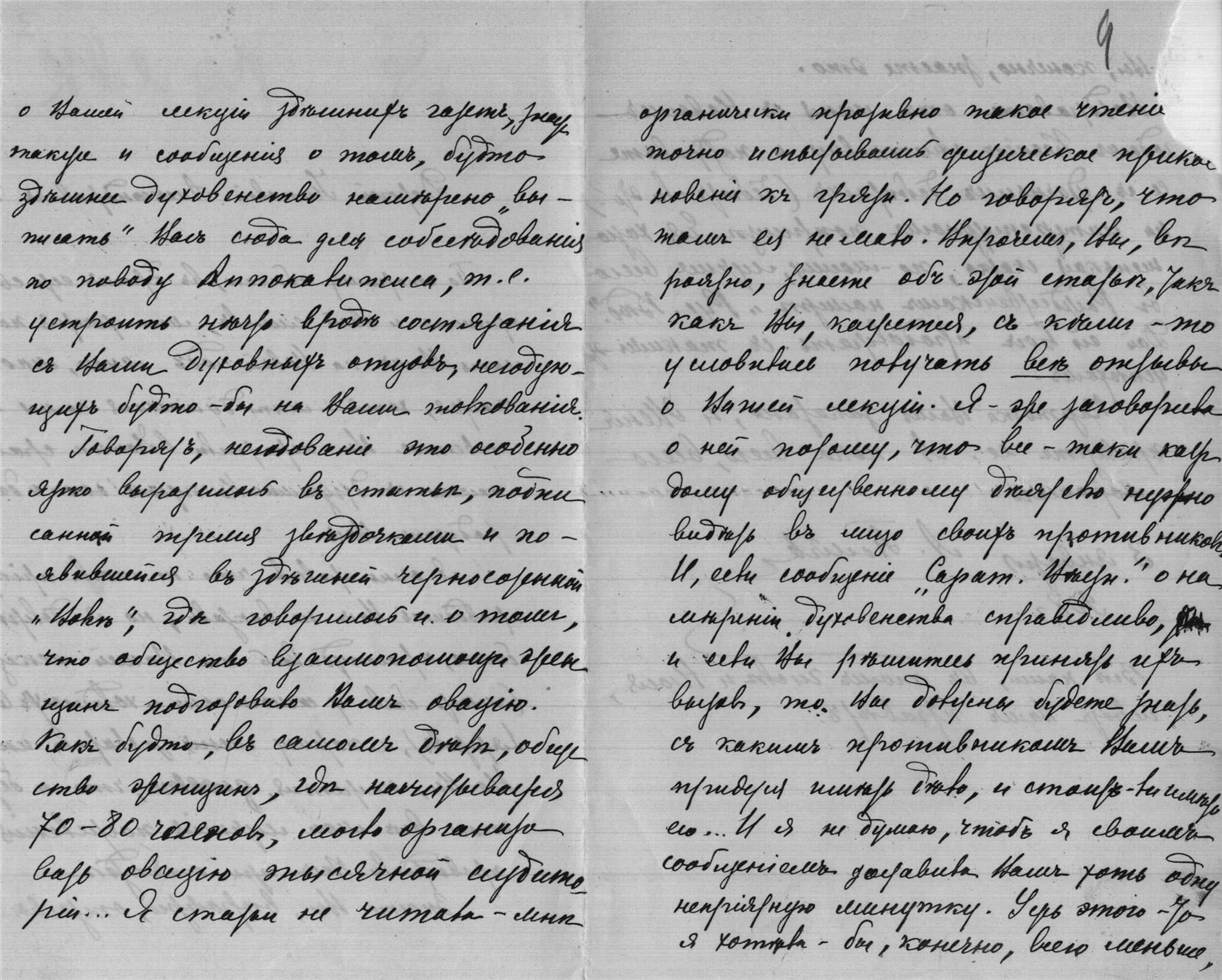 о Вашей лекціи здѣшнихъ газетъ, знаю
также и сообщенія о томъ, будто
здѣшнее духовенство намѣрено „вы-
писать“ Васъ сюда для собесѣдованія
по поводу Аппокалипсиса, т.е.
устроить нѣчто вродѣ состязанія
съ Вами духовныхъ отцовъ, негодую-
щихъ будто-бы на Ваши толкованія.
Говорятъ, негодованіе это особенно
ярко выразилось въ статьѣ, подпи
санной тремя звѣздочками и по-
явившейся въ здѣшней черносотенной
„Волгѣ“, гдѣ говорилось и о томъ,
что общество взаимопомощи жен
щинъ подготовило Вамъ овацію.
Какъ будто, въ самомъ дѣлѣ, обще
ство женщинъ, гдѣ насчитывается
70-80 членовъ, могло организо
вать овацію тысячной аудито-
ріи... Я статьи не читала - мнѣ
9
органически противно такое чтеніе
точно испытываешь физическое прикос
новеніе къ грязи. Но говорятъ, что
тамъ ея не мало. Впрочемъ, Вы, вѣ
роятно, знаете объ этой статьѣ, такъ
какъ Вы, кажется, съ кѣмъ-то
условились получать всѣ отзывы
о Вашей лекціи. Я-же заговорила
о ней потому, что все-таки каж
дому общественному дѣятелю нужно
видѣть въ лицо своихъ противниковъ.
И, если сообщеніе „Сарат. Вѣстн.“ о на
мѣреніи духовенства справедливо,
и если Вы рѣшитесь принять ихъ
вызовъ, то Вы должны будете знать,
съ какимъ противникомъ Вамъ
придется имѣть дѣло, и стоитъ-ли имѣть
его... И я не думаю, чтобъ я своимъ
сообщеніемъ доставила Вамъ хоть одну
непріятную минутку. Ужъ этого-то
я хотѣла-бы, конечно, всего меньше,